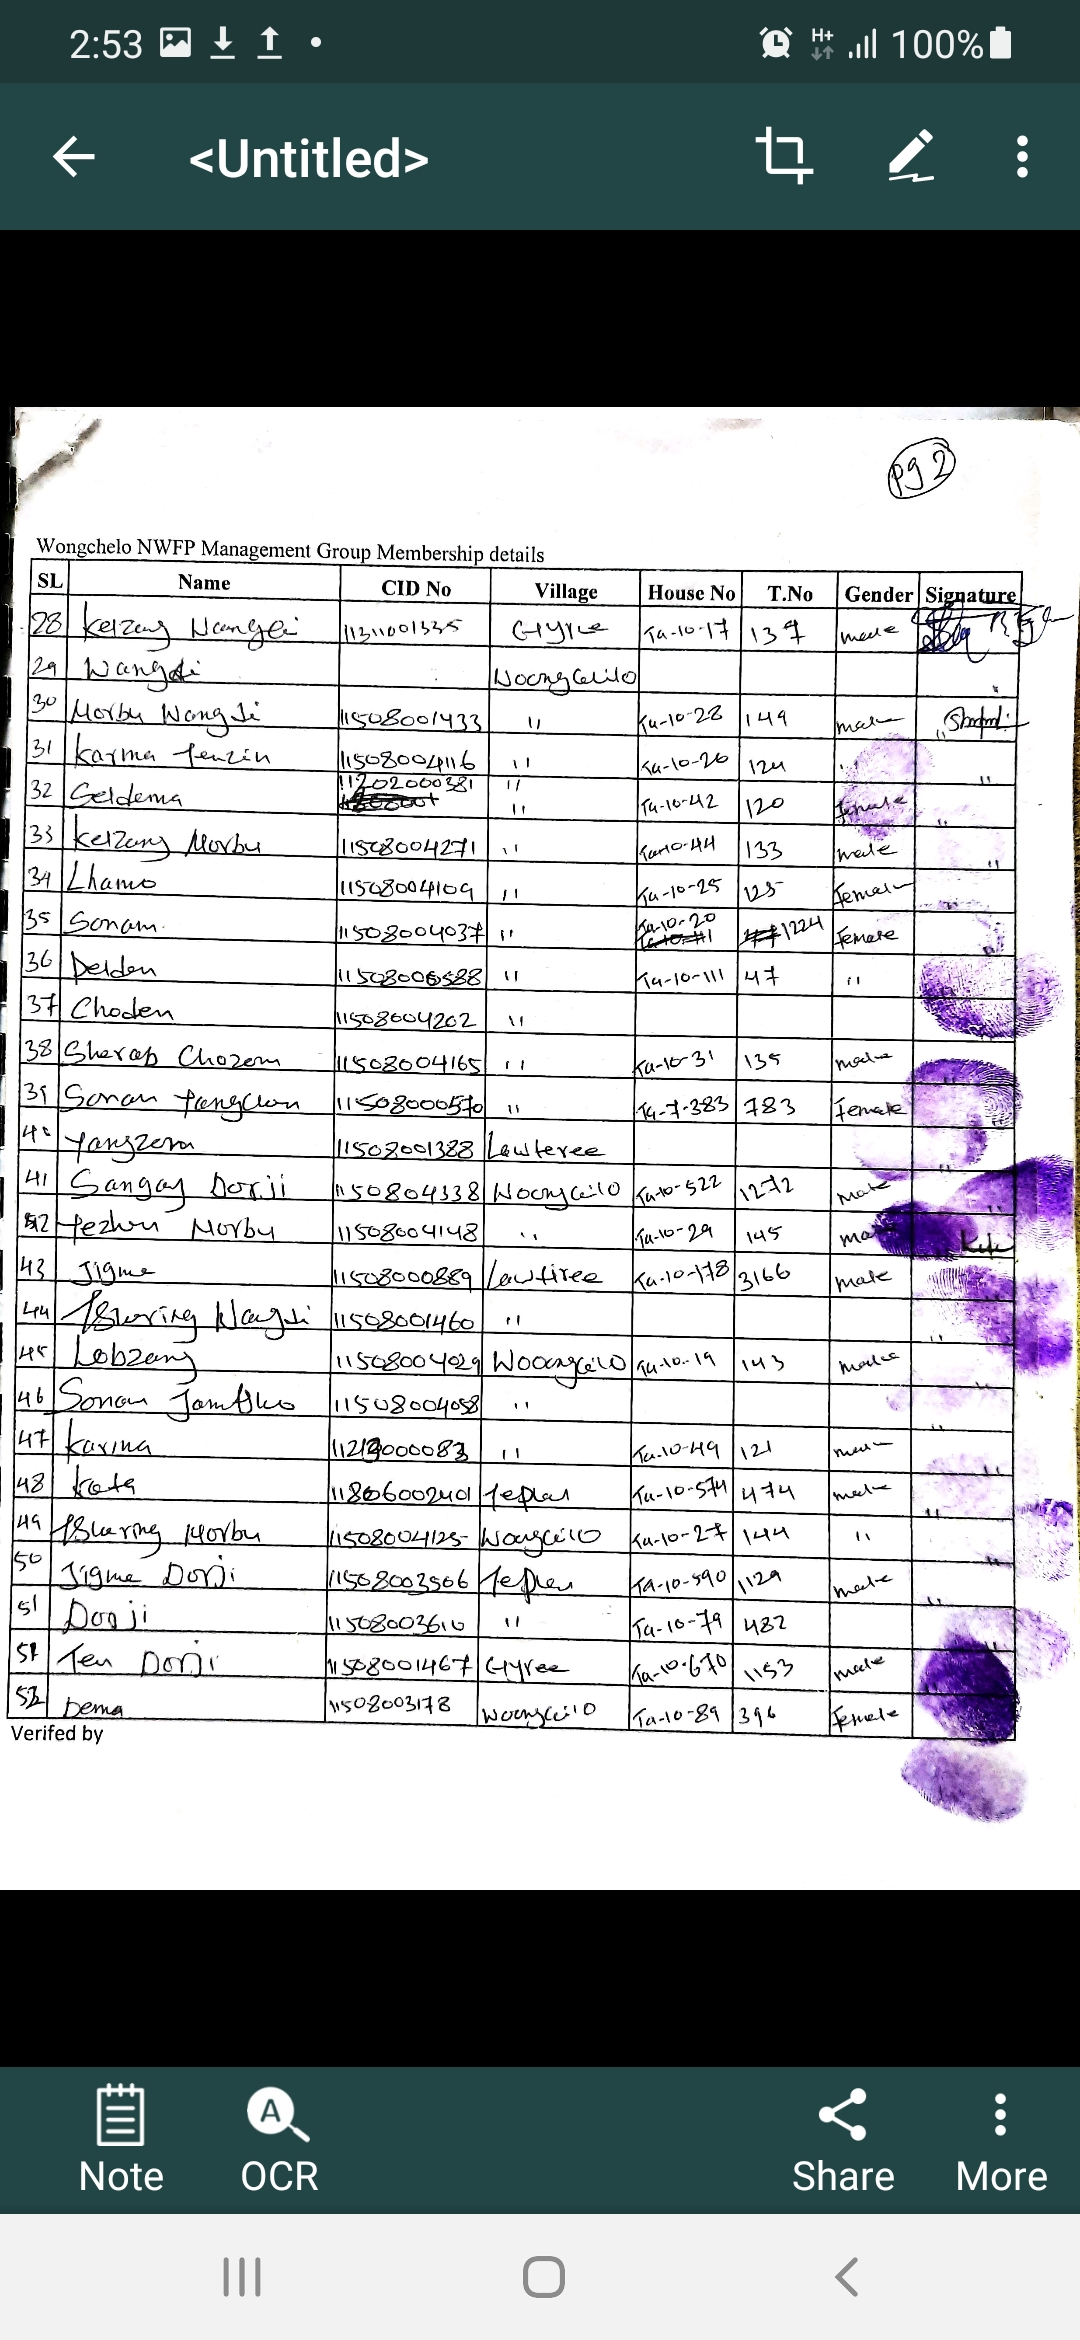 2:53 H+ 100%
<Untitled>
pg 2
Wongchelo NWFP Management Group Membership details
SL Name CID No Village House No T.No Gender Signature
28 Kelzang Wangdi 11311001335 Gyree Ta-10-17 137 male
29 Wangdi Woongchilo
30 Norbu Wangdi 11508001433 " Ta-10-28 149 male
31 Karma Tenzin 11508004116 " Ta-10-26 124 "
32 Seldema 11202000381 " Ta-10-42 120 female
33 Kelzang Norbu 11508004271 " Ta-10-44 133 male
34 Lhamo 11508004109 " Ta-10-25 125 female
35 Sonam 11508004037 " Ta-10-20 1224 Female
36 Delden " Ta-10-111 47 "
37 Choden 11508004202 "
38 Sherab Chozom 11508004165 " Ta-10-31 135 male
39 Sonam Yangchen 11508000570 " Ta-7-383 783 Female
40 Yangzom 11508001388 Lawteree
41 Sangay Dorji 1150804338 Woongchilo Ta-10-522 1272 Male
42 Norbu 11508004148 " Ta-10-29 145
43 Jigme 11508000889 Lawtiree Ta-10-178 3166 male
44 Tshering Wangdi 11508001460 "
45 Lobzang 11508004029 Woongchilo Ta-10-19 143 male
46 Sonam Jamtsho 11508004058 "
47 Karma " Ta-10-49 121 male
48 Kota 11806002401 Ta-10-574 474 male
49 Tshering Norbu 11508004125 Woongchilo Ta-10-27 144 "
50 Jigme Dorji 11508003506 Ta-10-590 1129 male
51 Dorji 11508003610 " Ta-10-79 482
Ten Dorji 11508001467 Gyree Ta-10-670 1153 male
53 Dema 11508003178 Woongchilo Ta-10-89 396 Female
Verifed by
Note OCR Share More